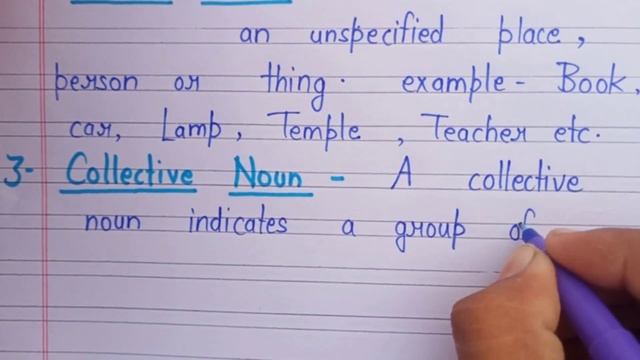 an unspecified place,
person or thing. example - Book,
car, Lamp, Temple, Teacher etc.
3- Collective Noun - A collective
noun indicates a group of